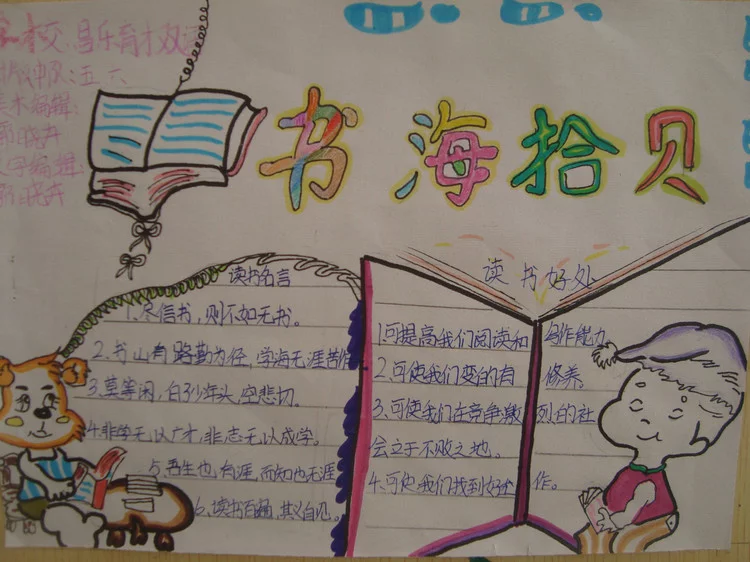 学校:昌乐育才双语
中队:五、六
美术编辑:
郭晓卉
文字编辑:
郭晓卉
书海拾贝
读书名言
1、尽信书,则不如无书。
2、书山有路勤为径,学海无涯苦作
3、莫等闲,白了少年头,空悲切。
4、非学无以广才,非志无以成学。
5、吾生也有涯,而知也无涯
6、读书百遍,其义自见。
读书好处
1.可提高我们阅读和写作能力
2.可使我们变的有修养
3.可使我们在竞争激烈的社
会立于不败之地。
4.可使我们找到好工作。